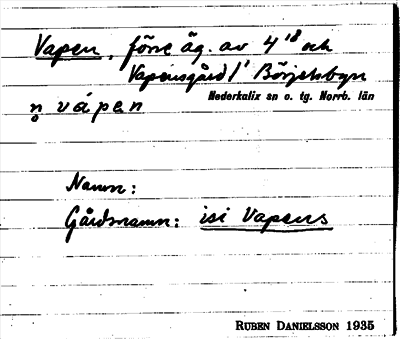 Vapen, förre äg. av 4¹⁸ och
Vapensgård 1¹ Börjelsbyn
Nederkalix sn o. tg. Norrb. län
n̥ vápen
Namn:
Gårdsnamn: isi Vapens
RUBEN DANIELSSON 1935